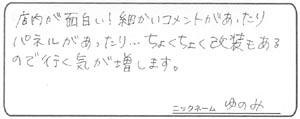 店内が面白い！細かいコメントがあったり
パネルがあったり…ちょくちょく改装もある
ので行く気が増します。
ニックネーム ゆのみ